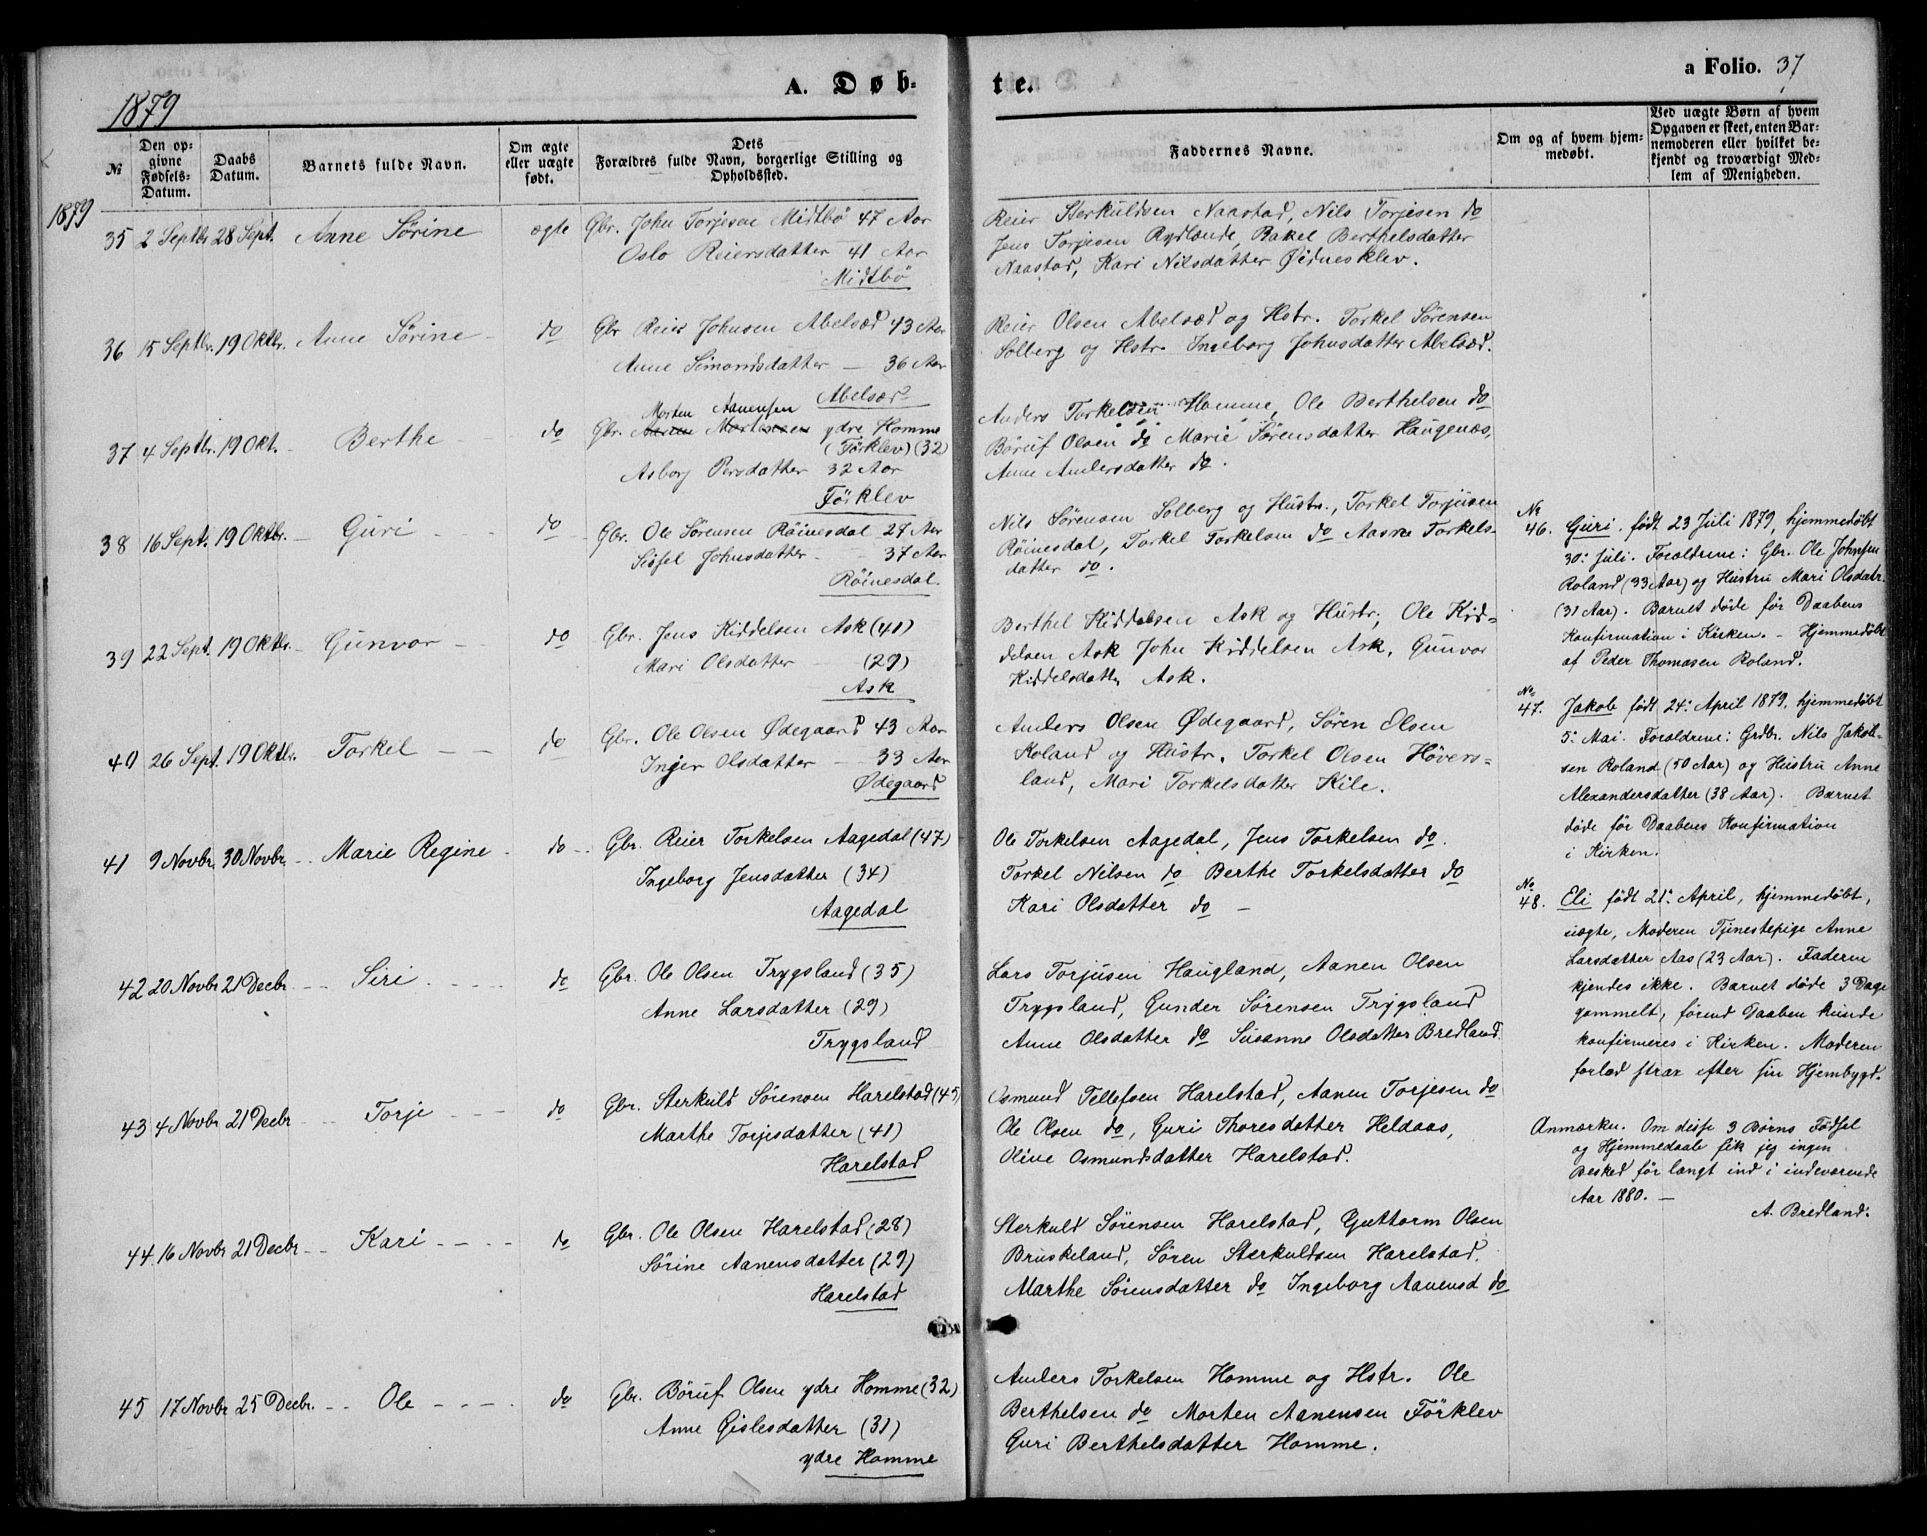 A. Døb-
te.
a Folio. 37
1879
№
Den op-
givne
Fødsels-
Datum.
Daabs
Datum.
Barnets fulde Navn.
Om ægte
eller uægte
født.
Dets
Forældres fulde Navn, borgerlige Stilling og
Opholdssted.
Faddernes Navne.
Om og af hvem hjem-
medøbt.
Ved uægte Børn af hvem
Opgaven er skeet, enten Bar-
nemoderen eller hvilket be-
kjendt og troværdigt Med-
lem af Menigheden.
1879
35 2 Septbr 28 Sept. Anne Sørine ægte Gbr. John Torjesen Midtbö 47 Aar
Oslo Reiersdatter 41 Aar
Midtbö
Reier Sterkuldsen Naastad, Nils Torjesen do
Jens Torjesen Rydlende, Rakel Berthelsdatter
Naastad, Kari Nilsdatter Øidnesklev.
36 15 Septbr. 19 Oktbr. Anne Sørine - do Gbr Reier Johnsen Abelsæd 43 Aar
Anne Simonsdatter — 36 Aar
Abelsæd
Reier Olsen Abelsæd og Hstr. Torkel Sørensen
Solberg og Hstr. Ingeborg Johnsdatter Abelsæd.
Morten Aanensen
37 4 Septbr. 19 Okt. - Berthe - - do Gbr. Aanen Mortensen ydre Homme
(Förklev) (32)
Asborg Persdatter 32 Aar
Förklev
Anders Torkelsen Homme, Ole Berthelsen do
Böruf Olsen do Marie Sørensdatter Haugenæs,
Anne Andersdatter do.
38 16 Sept. 19 Oktbr. - Guri - - do Gbr. Ole Sørensen Röinesdal 27 Aar
Sissel Johnsdatter - 37 Aar
Röinesdal.
Nils Sørensen Solberg og Hustr., Torkel Torjusen
Röinesdal, Torkel Torkelsen do Aasne Torkels-
datter do.
39 22 Sept. 19 Oktbr. - Gunvor - do Gbr. Jens Kiddelsen Ask (40)
Mari Olsdatter - (29)
Ask
Berthel Kiddelsen Ask og Hustr, Ole Kid-
delsen Ask John Kiddelsen Ask, Gunvor
Kiddelsdattr Ask.
40 26 Sept. 19 Oktbr. Torkel — — do Gbr. Ole Olsen Ødegaard 43 Aar
Inger Olsdatter — 33 Aar
Ødegaard
Anders Olsen Ødegaard, Sören Olsen
Roland og Hustr. Torkel Olsen Hövers-
land, Mari Torkelsdatter Kile.
41 9 Novbr. 30 Novbr. - Marie Regine - do - Gbr. Reier Torkelsen Aagedal (47)
Ingeborg Jensdatter (34)
Aagedal
Ole Torkelsen Aagedal, Jens Torkelsen do.
Torkel Nilsen do Berthe Torkelsdatter do
Kari Olsdatter do —
42 20 Novbr 21 Decbr. - - Siri - - - - do Gbr. Ole Olsen Trygsland (35)
Anne Larsdatter (29)
Trygsland
Lars Torjusen Haugland, Aanen Olsen
Trygsland, Gunder Sørensen Trygsland
Anne Olsdatter do Susanne Olsdatter Bredland.
43 4 Novbr 21 Decbr - - Torje - - - do Gbr. Sterkuld Sörensen Harelstad (45)
Marthe Torjesdatter (41)
Harelstad
Osmund Tellefsen Harelstad, Aanen Torjesen do
Ole Olsen do, Guri Thoresdatter Heldaas,
Oline Osmundsdatter Harelstad.
44 16 Novbr 21 Decbr - - Kari - - - - do Gbr. Ole Olsen Harelstad (28)
Sörine Aanensdatter (29)
Harelstad
Sterkuld Sörensen Harelstad, Guttorm Olsen
Bruskeland, Sören Sterkuldsen Harelstad.
Marthe Sörensdatter do Ingeborg Aanensd do
45 17 Novbr 25 Decbr. - - Ole - - - - do Gbr. Böruf Olsen ydre Homme (32)
Anne Gislesdatter (31)
ydre Homme
Anders Torkelsen Homme og Hstr. Ole
Berthelsen do Morten Aanensen Förklev
Guri Berthelsdatter Homme.
No
46. Guri. født 23 Juli 1879, hjemmedøbt
30: Juli. Forældrene: Gbr. Ole Johnsen
Roland (33 Aar) og Hustru Mari Olsdatr.
(31 Aar). Barnet døde før Daabens
Konfirmation i Kirken. - Hjemmedøbt
af Peder Thomasen Roland.
No
47. Jakob født 24: April 1879, hjemmedøbt
5: Mai. Forældrene: Grdbr. Nils Jakob-
sen Roland (50 Aar) og Hustru Anne
Alexandersdatter (38 Aar). Barnet
døde før Daabens Konfirmation
i Kirken.
No
48. Eli født 21: April, hjemmedøbt,
uægte, Moderen Tjenestepige Anne
Larsdatter Aas (23 Aar). Faderen
kjendes ikke. Barnet døde 3 Dage
gammelt, førend Daaben kunde
konfirmeres i Kirken. Moderen
forlod strax efter sin Hjembygd.
Anmærkn. Om disse 3 Børns Fødsel
og Hjemmedaab fik jeg ingen
Besked før langt ind i indeværende
Aar 1880. —
A. Bredland.